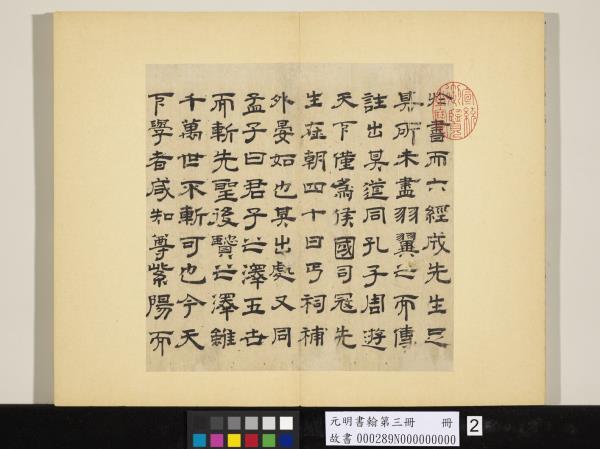 書而六經成先生
其所未盡羽翼之而傳
註出其道同孔子周遊
天下僅爲侯國司寇先
生在朝四十日丐祠補
外晏如也其出處又同
孟子曰君子之澤五世
而斬先聖後賢之澤雖
千萬世不斬可也今天
下學者咸知尊紫陽而
宣統
御覽
之寶
元明書翰第三冊 冊
故書 000289N000000000
2